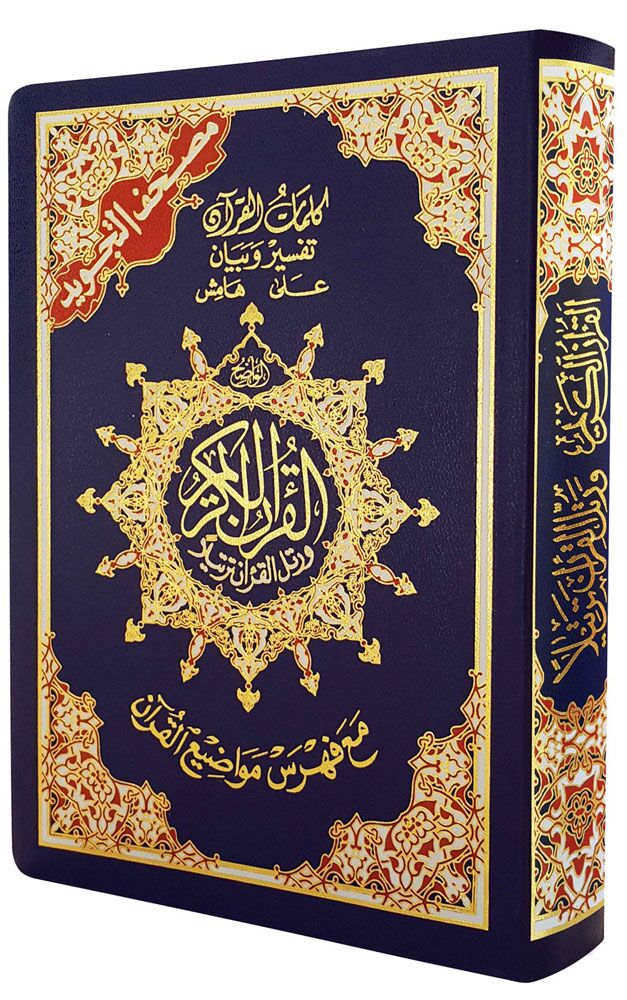 مصحف التجويد
كلمات القرآن
تفسير وبيان
على هامش
الواضح
القرآن الكريم
ورتل القرآن ترتيلا
مع فهرس مواضيع القرآن
القرآن الكريم
ورتل القرآن ترتيلا